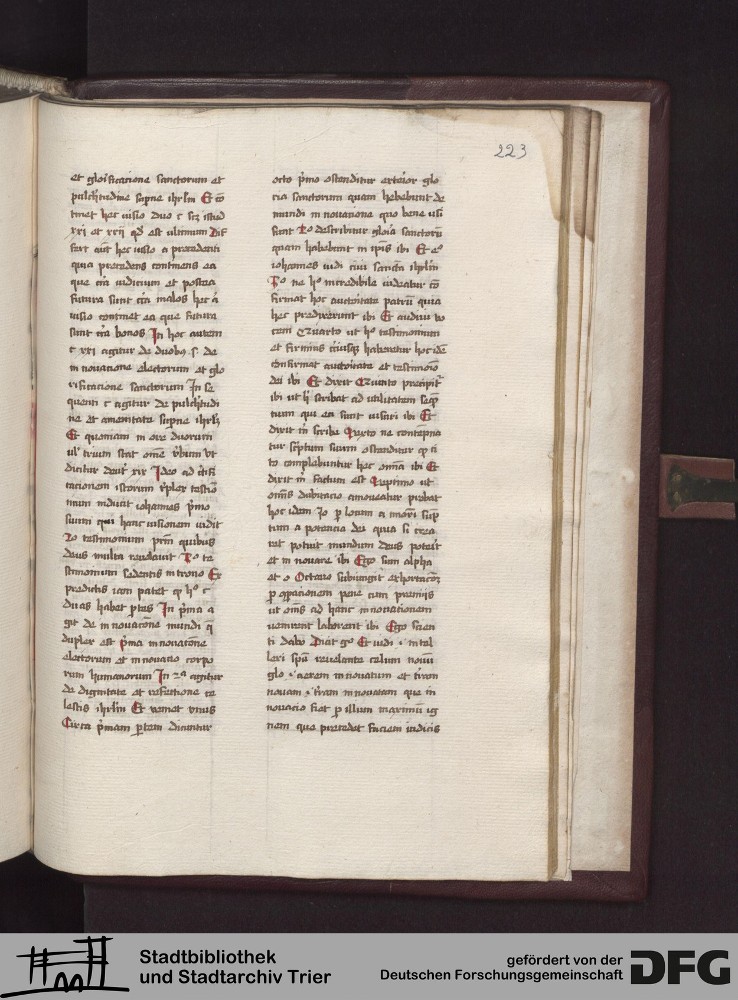 223
et glorificatione sanctorum et
pulchritudine superne ihrlm Et con
tinet hec visio duo c scz istud
xxi et xxii qd est ultimum Dif
fert aut hec visio a precedenti
quia precedens continens ea
que circa iudicium et postea
futura sunt circa malos hec a
visio continet ea que futura
sunt circa bonos In hoc autem
c xxi agitur de duobus s. de
in novatione electorum et glo
rificatione sanctorum In se
quenti c agitur de pulchritudi
ne et amenitate superne ihrlm
Et quoniam in ore duorum
vel trium stat omne verbum ut
dicitur deut xix Ideo ad
tacionem istorum tripler testio
nium inducit iohannes primo
suum qui hanc visionem vidit
2o testimonium prm quibus
deus multa revelavit 3o te
stimonium sedentis in trono Ex
predictis iam patet qp hoc c
duas habet partes In prima a
git de in novatione mundi q
dupler est prima in novatione
electorum et in novatio corpo
rum humanorum In 2a agitur
de dignitate et refectione ce
lestis ihrlm Et venit unus
Circa primam partem dicuntur
octo primo ostenditur exterior glo
ria sanctorum quam habebunt de
mundi in novatione quo bene usi
sunt 2o describitur gloria sanctorum
quam habebunt in ipsis ibi Et ego
iohannes vidi civitatem sanctam ihrlm
3o ne hoc incredibile videatur con
firmat hoc auctoritate patrum quia
hec predixerunt ibi Et audivi vo
cem Quarto ut hoc testimonium
et firmius habeatur hoc idem
confirmat auctoritate et testimonio
dei ibi Et dixit Quinto precipitur
ibi ut hec scribat ad utilitatem
tium qui ea sunt visuri ibi Et
dixit in scribe Sexto ne contempna
tur scriptum suum ostenditur qp ci
to complebuntur hec omnia ibi Et
dixit in factum est Septimo ut
omnis dubitatio amoveatur probat
hoc idem Jo per locum a
tum a potencia dei quia si crea
re potuit mundum deus potuit
et in novare ibi Ego sum alpha
et o Octavo subiungit exhortacionem
per opposicionem pene cum premiis
ut omnes ad hanc in novationem
venirent laborent ibi Ego sicien
ti dabo Dicit ergo Et vidi i intel
lexi spu revelante celum novum
glo i aerem in novatum et terram
novam i terram in novatam que in
novacio fiet per illum maximum ig
nem que precedet faciem iudicis
Stadtbibliothek
und Stadtarchiv Trier
gefördert von der
Deutschen Forschungsgemeinschaft
DFG